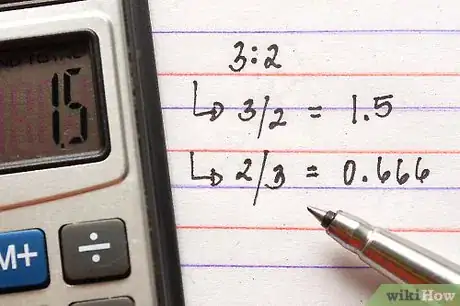 ND TOTAL
1.5
3:2
↳ 3/2 = 1.5
↳ 2/3 = 0.666
M+
÷
wikiHow